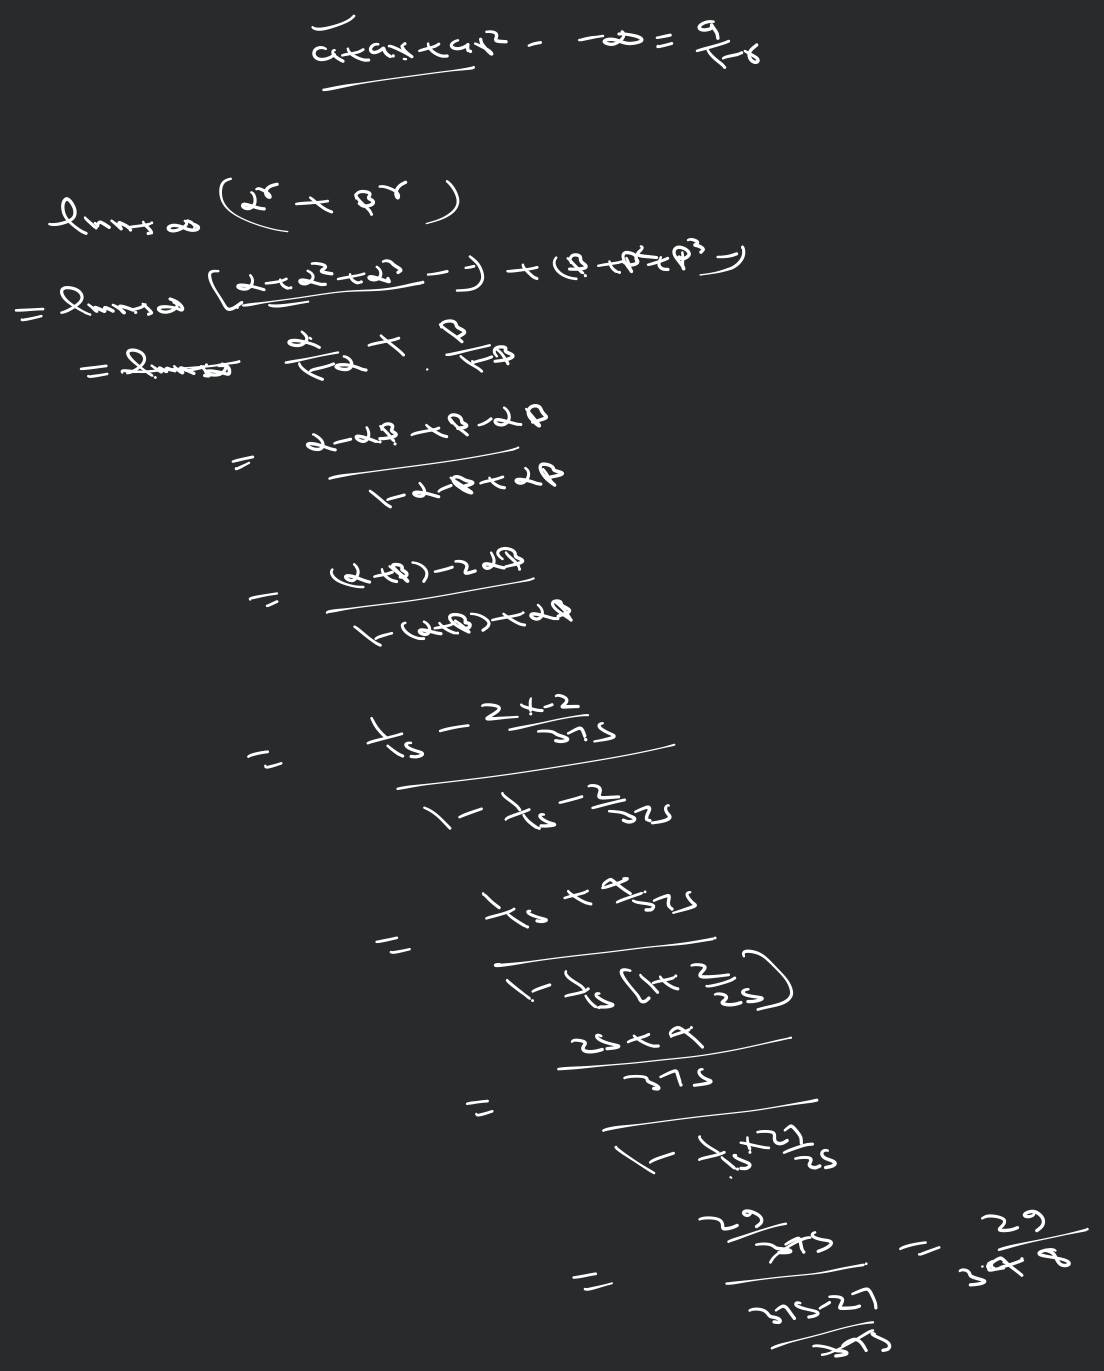 a+ar+ar² - -∞ = a/1-r
lim n→∞ (α^r + β^r)
= lim n→∞ [α+α²+α³ - -) + (β+β²+β³ -)
= lim n→∞ α/1-α + β/1-β
= α-αβ+β-αβ / 1-α-β+αβ
= (α+β)-2αβ / 1-(α+β)+αβ
= 1/15 - 2×-2/375 / 1 - 1/15 - 2/375
= 1/15 + 4/375 / 1 - 1/15 [1+ 2/25)
= 25+4/375 / 1 - 1/15 × 27/25
= 29/375 / 375-27/375 = 29/348